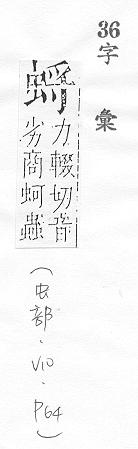 36字彙
蛶
力輟切音
劣商蚵蟲
(虫部·V10·P64)